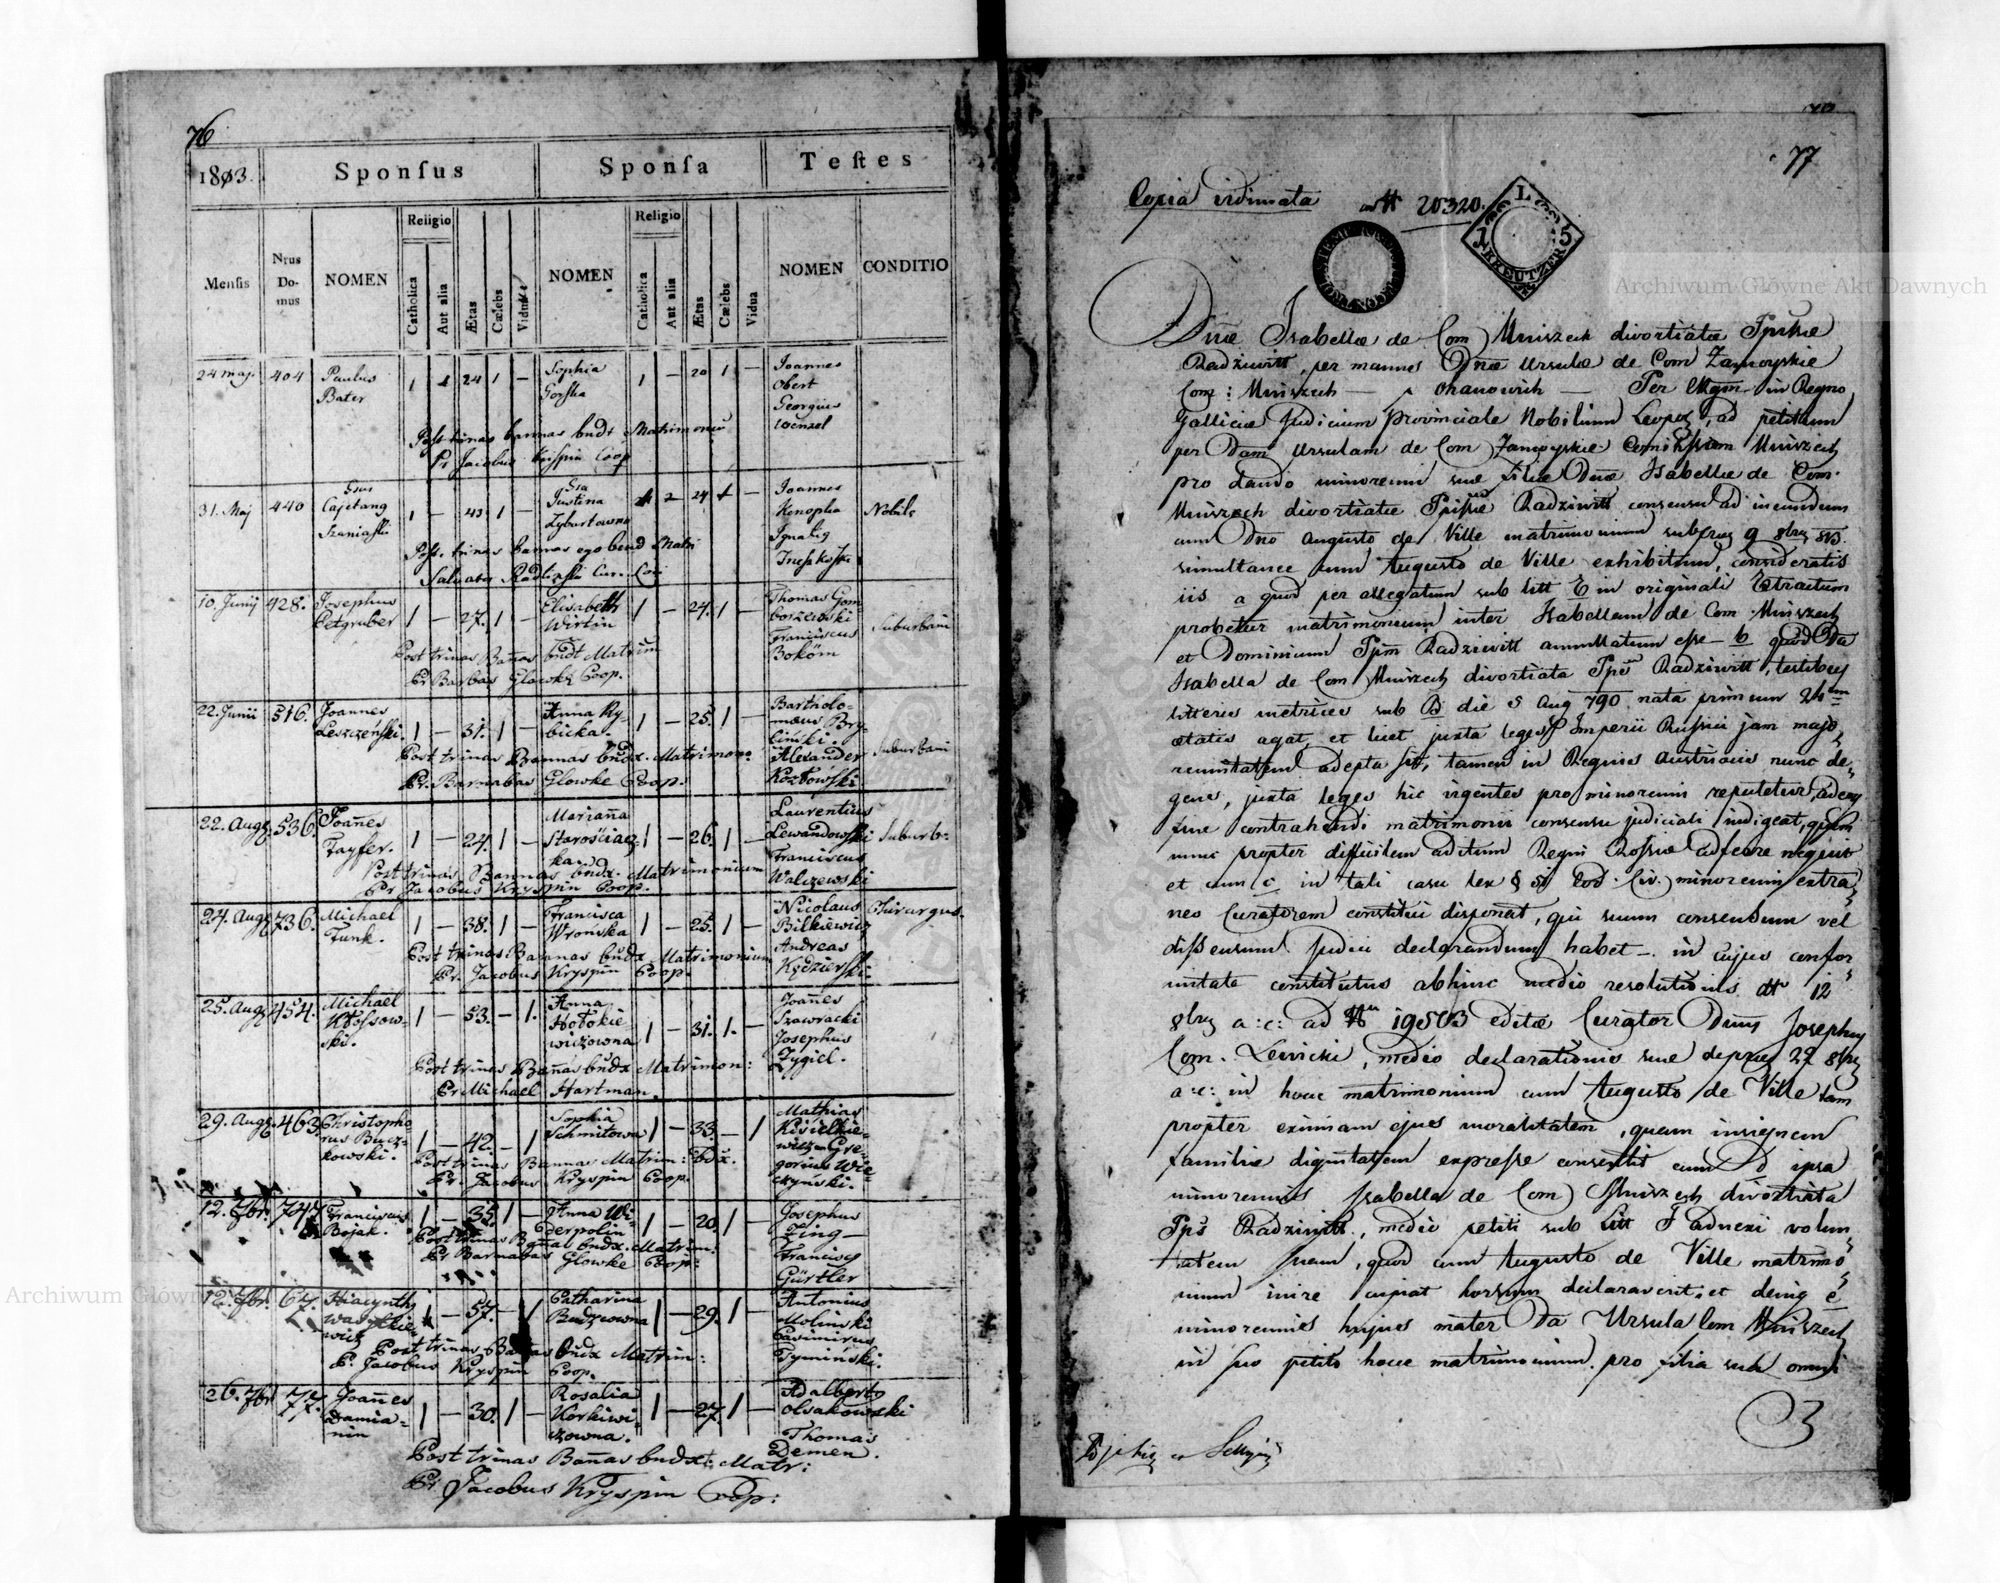 76
1803.
Sponſus
Sponſa
Teſtes
Menſis
Nrus Do-mus
NOMEN
Religio
Catholica
Aut alia
Ætas
Cælebs
Viduus
NOMEN
Religio
Catholica
Aut alia
Ætas
Cælebs
Vidua
NOMEN
CONDITIO
24 maj. 404 Paulus Bater 1 24 1 — Sophia Gorska 1 — 20 1 — Joannes Obert Georgius Wenzel
Post trinas bannas bndt Matrimoniū
Pr Jacobus Krispin Coop
31. Maj 440 Cajetang Szaniaski 1 — 43 1 — Justina Zyburtowna 24 Joannes Konopka Ignatig Nobile
Post. trinas bannas ego bened Matri
10. Junij 428. Josephus Cetgruber 1 — 27. 1 — Elisabeth Wirtin 1 — 24. 1 — Thomas Gomborzewski Franciscus Boköm Suburbani
Post trinas Bañas bndt Matrim
Pr Barbas Glowke Coop.
22. Junii 516. Joannes Leszczeński. 1 — 31. 1 — Anna Rybicka. 1 — 25. 1 — Bartholomæus Alexander Kozłowski Suburbani
Post trinas Bannas bndx. Matrimon:
Pr. Barnabas Glowke Coop.
22. Augą. 536. Joañes Fayfer. 1 — 24. 1 — Mariaña 1 — 26. 1 — Laurentius Lewandowski Franciscus Walczewski Suburb:
Post trinas Bannas bndx. Matrimonium
Pr Jacobus Kryspin Coop.
24. Augą 736. Michael Funk. 1 — 38. 1 — Francisca Wrońska 1 — 25. 1 — Nicolaus Bilkiewicz Andreas Kędzierski Chirurgus.
Post trinas Bannas bndx Matrimonium
Pr. Jacobus Kryspin Coop.
25. Augą 454. Michael Kłossowski. 1 — 53. — 1. Anna Hołokiewiczowna 1 — 31. 1. — Joañes Szawracki Josephus Zygiel.
Post trinas Bañas bndx Matrimon:
Pr Michael Hartman.
29. Augą. 463. Christophorus Buczkowski. 1 — 42. — 1 Sophia Schmitowa 1 — 33. — 1 Mathias Kisielkiewicz Gregorius
Post trinas Bannas Matrim: bdx.
Pr. Jacobus Kryspin Coop.
12. 7br. 747 Franciscus Bojak. 1 — 35. 1 — Anna Widerpolin 1 — 20. 1 — Josephus Zing Franciscg Gürtler
Post trinas Bañas bndx. Matrim:
Pr Barnabas Glowke Coop:
12. 7br. 67. Hiacynthg 1 — 57. — 1 Catharina Budzeowna 1 — 29. 1 — Antonius Molinski Casimirus Tyminski.
Post trinas Bañas bndx Matrim:
P. Jacobus Kryspin Coop.
26. 7br 77. Joañes Damianin 1 — 30. 1 — Rosalia Korkiwiczowna. 1 — 27. 1 — Adalbertg Olsakowski Thomas Demen.
Post trinas Bañas bndxt: Matr:
Pr Jacobus Kryspin Coop:
77
Copia vidimata
20320.
L
15
KREUTZER
Dnæ Isabellæ de Com Mniszech divortiatæ Ppissæ
Radziwiłł, per manus Dnæ Ursulæ de Com Zamoyskie
Com: Mniszech — Per in Regno
Galliciæ Judicium Provinciale Nobilium Leopol, ad petitum
per Dam Ursulam de Com Zamoyskie Mniszech
pro dando minorenni suæ filiæ Dnæ Isabellæ de Com.
Mniszech divortiatæ Radziwiłł consensu ad ineundum
cum Dno Augusto de Ville matrimonium 9 8bris 813.
simultanee cum Augusto de Ville exhibitum, consideratis
iis a quod per allegatum sub litt E in originali Extractum
probetur matrimonium inter Isabellam de Com Mniszech
et Dominum Radziwiłł annullatum esse — b quod Da
Isabella de Com Mniszech divortiata Radziwiłł, testibus
litteris metrices sub B die 5 Aug 790 nata primum 24um
ætatis agat, et licet juxta leges Imperii Russici jam majo
rennitatem adepta sit, tamen in Regnis Austriacis nunc de
gens, juxta leges hic vigentes pro minorenni reputetur, adeoq
fine contrahendi matrimonii consensu judiciali indigeat, quem
nunc propter difficilem aditum Regni Rossiæ adferre nequit
et cum c in tali casu lex § 51 Cod. Civ.) minorenni extra
neo Curatorem constitui disponat, qui suum consensum vel
dissensum Judicii declarandum habet — in cujus confor
mitate constitutus abhinc medio resolutionis dtt 12
8bris a: c: ad 19503 editæ Curator Dnus Josephus
Com. Lewicki, medio declarationis suæ de 27 8bris
a: c: in hocce matrimonium cum Augusto de Ville tam
propter eximiam ejus moralitatem, quam insignem
familiæ dignitatem expresse consentit cum D ipsa
minorennis Isabella de Com Mniszech divortiata
Radziwiłł, medio petiti sub litt F adnexi volun
tatem suam, quod cum Augusto de Ville matrimo
nium inire cupiat horsum declaraverit: et deing
minorennis hujus mater Da Ursula Com Mniszech
in suo petito hocce matrimonium pro filia sua omni
Archiwum Główne Akt Dawnych
Archiwum Główne